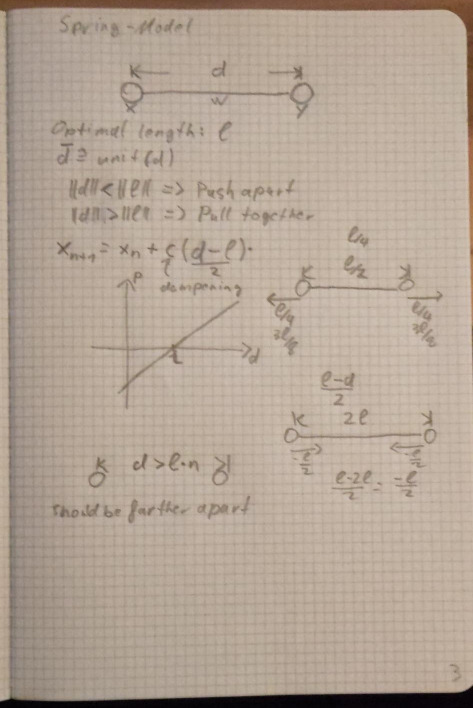 Spring-Model
d
w
x y
Optimal length: ℓ
d̄ ≙ unit(d)
||d|| < ||ℓ|| => Push apart
||d|| > ||ℓ|| => Pull together
xₙ₊₁ = xₙ + c (d-ℓ)/2 ·
dampening
P
ℓ
d
ℓ/4
ℓ/2
ℓ/4
ℓ/4
(ℓ-d)/2
2ℓ
-ℓ/2 -ℓ/2
(ℓ-2ℓ)/2 = -ℓ/2
d > ℓ·n
should be farther apart
3